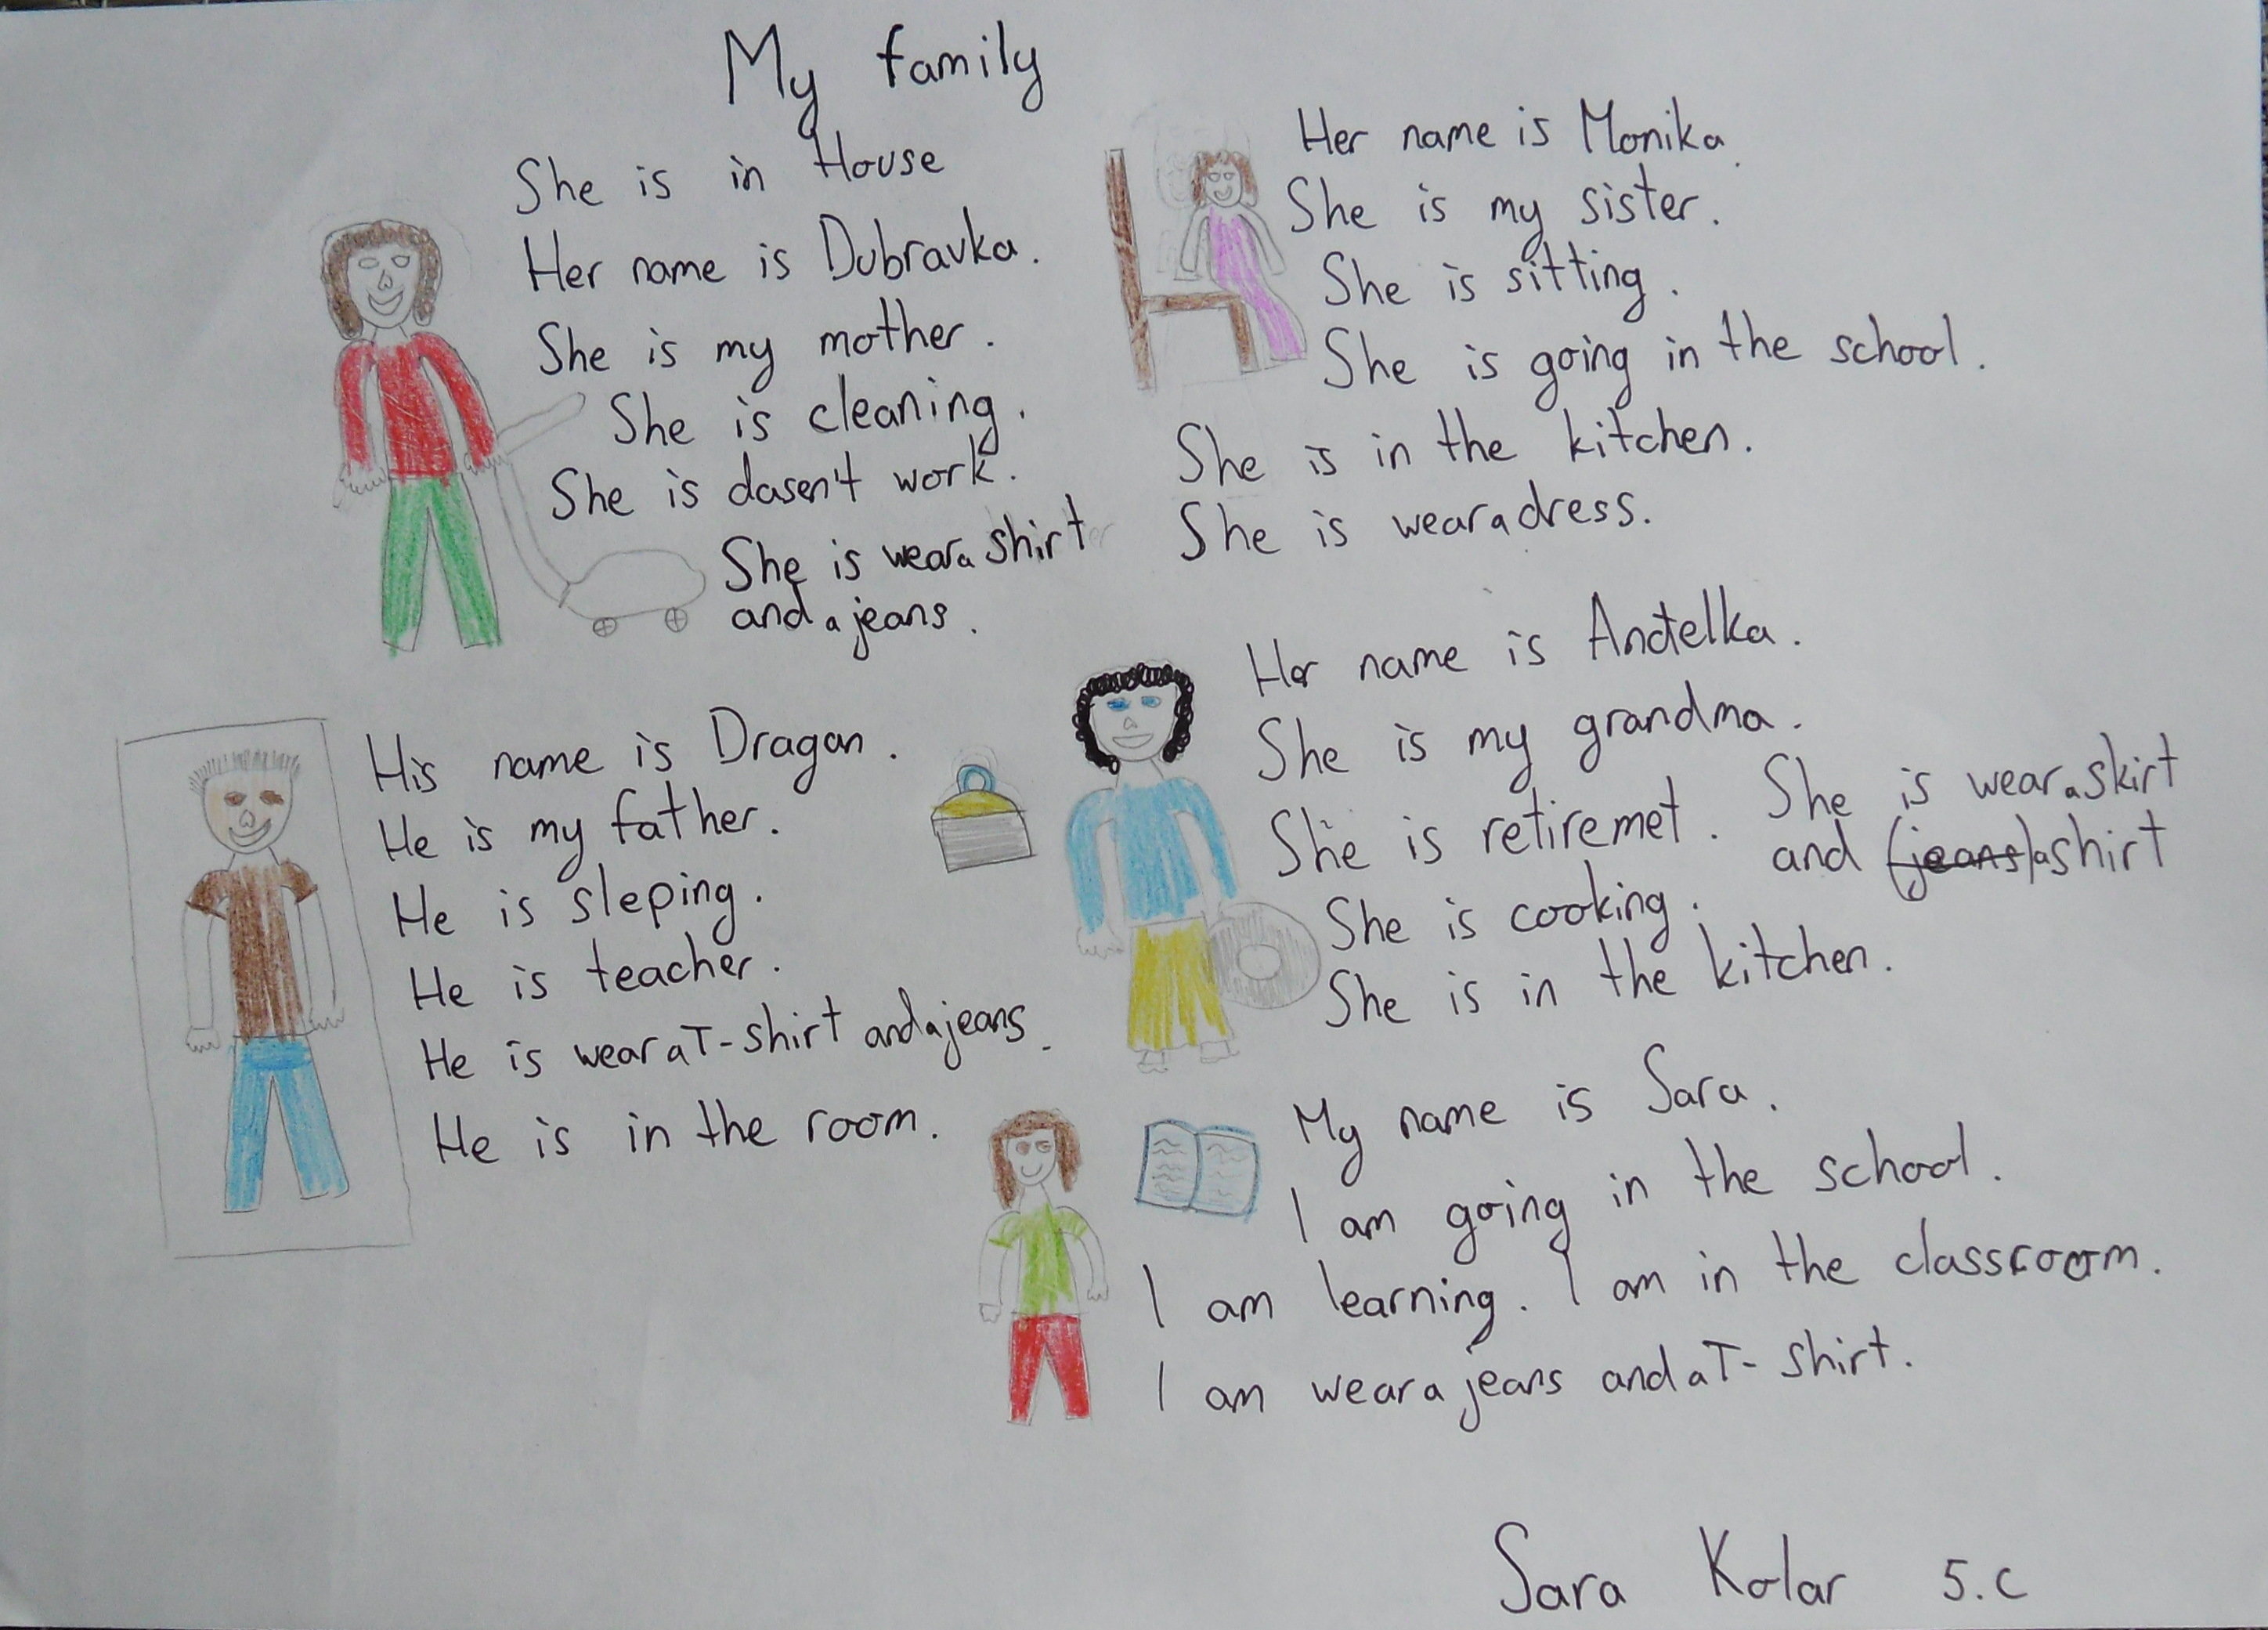 My family
She is in House
Her name is Dubravka.
She is my mother.
She is cleaning.
She is dasen't work.
She is wear a shirt
and a jeans.
Her name is Monika.
She is my sister.
She is sitting.
She is going in the school.
She is in the kitchen.
She is wear a dress.
His name is Dragan.
He is my father.
He is sleping.
He is teacher.
He is wear a T-shirt and a jeans.
He is in the room.
Her name is Anđelka.
She is my grandma.
She is retiremet.
She is cooking.
She is in the kitchen.
She is wear a skirt
and (jeans) a shirt
My name is Sara.
I am going in the school.
I am learning. I am in the classroom.
I am wear a jeans and a T-shirt.
Sara Kolar 5.c